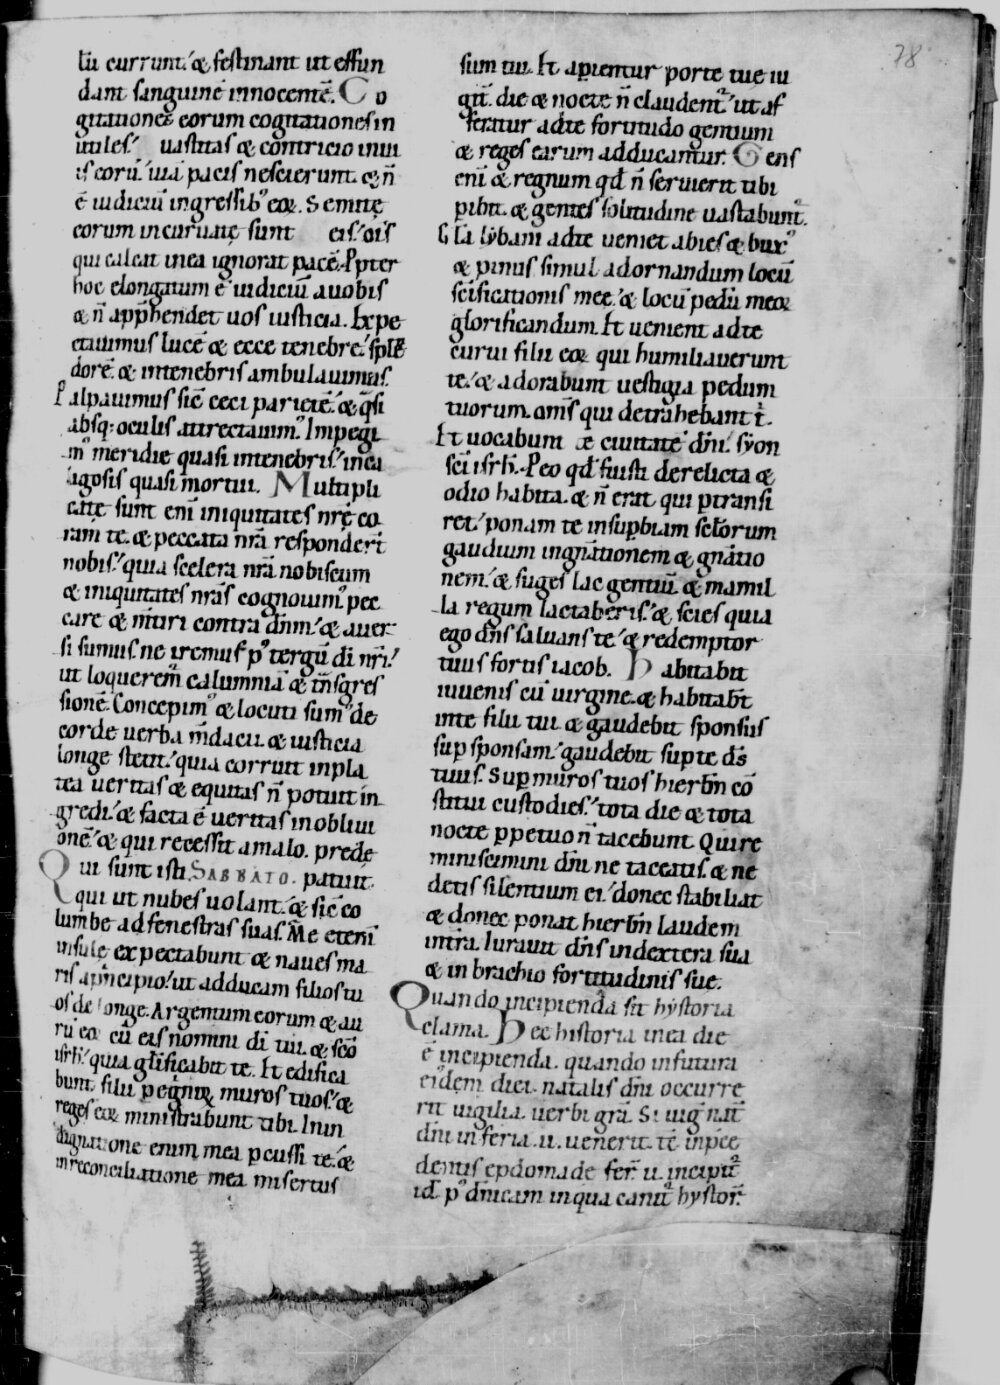 78
lũ currunt. & festinant ut effun
dant sanguinẽ innocentẽ. Co
gitationes eorum cogitationes in
utiles. uastitas & contricio in uii
is eorũ. uiã pacis nescierunt. & ñ
ẽ iudiciũ in gressib' eoꝝ. Semitę
eorum incuruatę sunt eis. ois
qui calcat in ea ignorat pacẽ. Ꝓpter
hoc elongatum ẽ iudiciũ a uobis
& ñ app̃hendet uos iusticia. Expe
ctauimus lucẽ & ecce tenebre. splẽ
dorẽ. & in tenebris ambulauimus.
Palpauimus sic̃ ceci parietẽ. & q̃si
absq: oculis attrectauim'. Impegi
m' meridie quasi in tenebris. in ca
ligosis quasi mortui. Multipli
catę sunt eni iniquitates nrę co
ram te. & peccata nr̃a respondert̃
nobis. quia scelera nr̃a nobiscum
& iniquitates nr̃as cognouim'. pec
care & m̃tiri contra dñm. & auer
si sumus. ne iremus p' tergũ di nr̃i.
ut loquerem' calumniã & tñsgres
sionẽ. Concepim' & locuti sum' de
corde uerba m̃dacii. & iusticia
longe stetit. quia corruit in pla
tea ueritas & equitas ñ potuit in
gredi. & facta ẽ ueritas in obliui
onẽ. & qui recessit a malo. prede
Qui sunt isti. SABBATO. patuit.
qui ut nubes uolant. & sic̃ co
lumbe ad fenestras suas. Me eteni
insulę expectabunt & naues ma
ris a p̃ncipio. ut adducam filios tu
os de longe. Argentum eorum & au
rũ eo cũ eis nomini di tui. & sc̃o
isrl̃. quia gl̃ificabit te. Et edifica
bunt filii pegrinoꝝ muros tuos. &
reges eoꝝ ministrabunt tibi. In in
dignatione enim mea percussi te. &
in reconciliatione mea misertus
sum tui. Et aperientur porte tue iu
git̃. die & nocte ñ claudent̃. ut af
feratur ad te fortitudo gentium
& reges earum adducantur. Gens
eni & regnum qd̃ ñ seruierit tibi
ꝑibit. & gentes solitudine uastabunt̃.
Gl̃a lybani ad te ueniet abies & bux'
& pinus simul ad ornandum locũ
sc̃ificationis mee. & locũ pedũ meoꝝ
glorificandum. Et uenient ad te
curui filii eoꝝ qui humiliauerunt
te. & adorabunt uestigia pedum
tuorum. oms qui detrahebant t.
Et uocabunt te ciuitatẽ dñi. syon
sc̃i isrl̃. Ꝓ eo qd̃ fuisti derelicta &
odio habita. & ñ erat qui ꝑtransi
ret. ponam te in suꝑbiam sclorum
gaudium in gñationem & gñatio
nem. & suges lac gentiũ. & mamil
la regum lactaberis. & scies quia
ego dñs saluans te. & redemptor
tuus fortis iacob. Habitabit
iuuenis cũ uirgine. & habitabt̃
in te filii tui. & gaudebit sponsus
suꝑ sponsam. gaudebit suꝑ te d̃s
tuus. Suꝑ muros tuos hierl̃m cõ
stitui custodies. tota die & tota
nocte ꝑpetuo ñ tacebunt. Qui re
miniscimini dñi ne taceatis. & ne
detis silentium ei. donec stabiliat
& donec ponat hierl̃m laudem
in tr̃a. Iurauit dñs in dextera sua
& in brachio fortitudinis sue.
Quando incipienda sit hystoria
clama. Hec historia in ea die
ẽ incipienda. quando in futura
eidem diei. natalis dñi occurre
rit uigilia. uerbi grã. Si uig̃ nat̃
dñi in feria .ii. uenerit. tẽ in p̃ce
dentis epdomade fer̃ .ii. incipit̃
id̃ p' dñicam in qua canit̃ hystor̃.